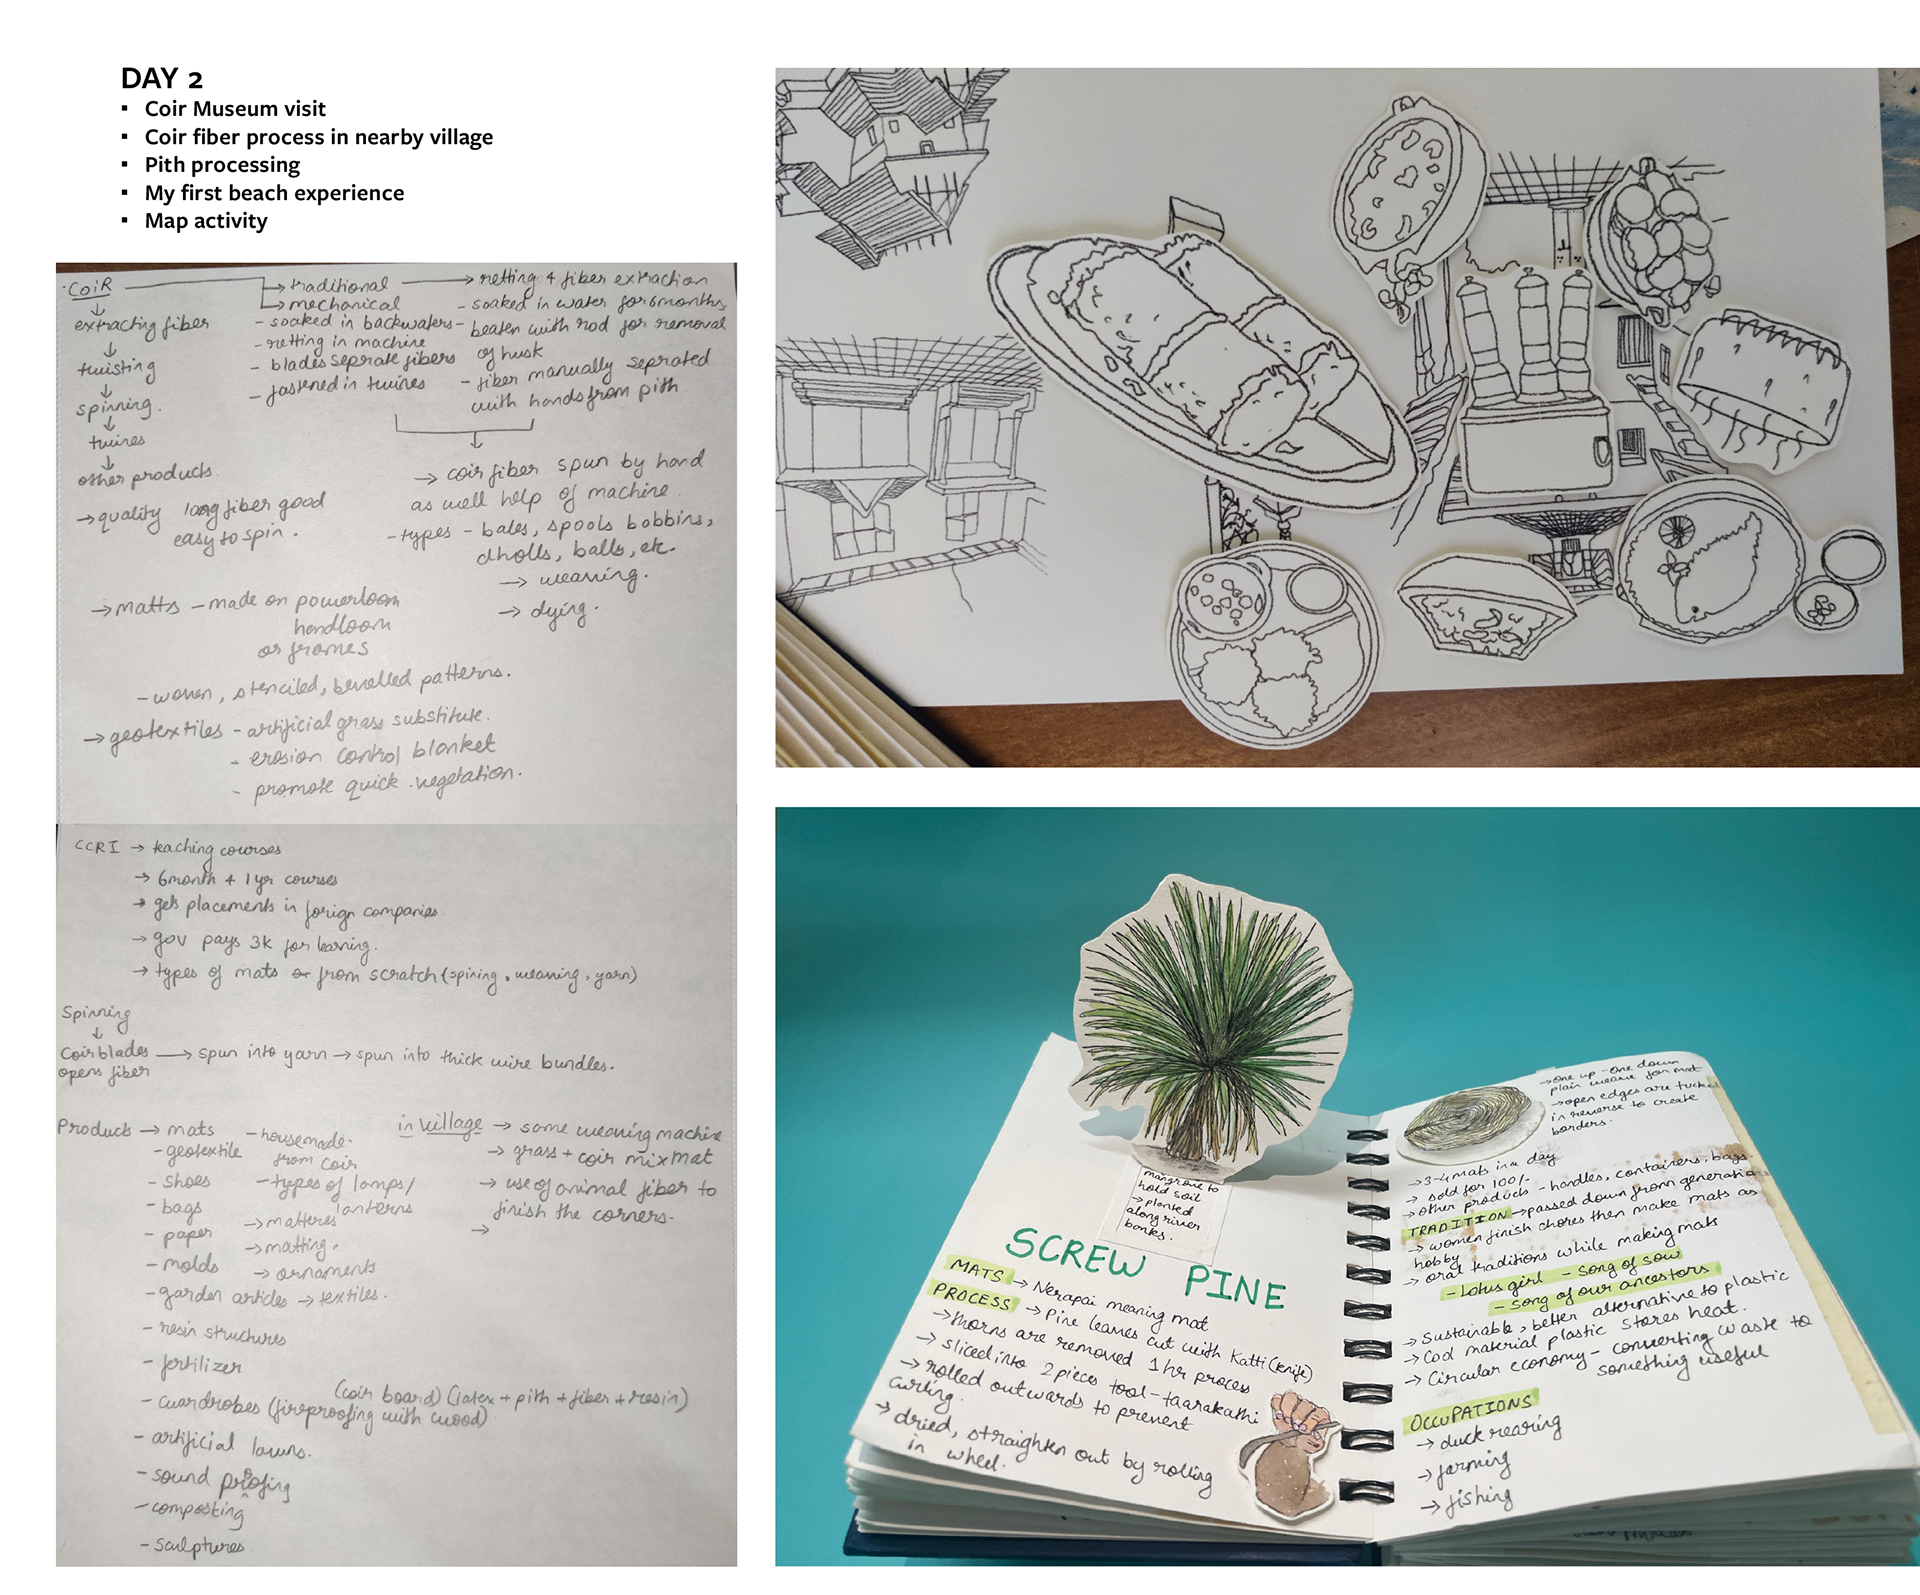 DAY 2
▪ Coir Museum visit
▪ Coir fiber process in nearby village
▪ Pith processing
▪ My first beach experience
▪ Map activity
CoiR
→ traditional → retting & fiber extraction
→ mechanical
- soaked in water for 6 months
- beaten with rod for removal
of husk
- fiber manually seprated
with hands from pith
- soaked in backwaters
- retting in machine
- blades seprate fibers
- fastened in twines
↓
extracting fiber
↓
twisting
↓
spinning.
↓
twines
↓
other products.
→ quality long fiber good
easy to spin.
→ coir fiber spun by hand
as well help of machine.
- types - bales, spools bobbins,
dholls, balls, etc.
→ weaving.
→ dying.
→ matts - made on powerloom
handloom
or frames
- woven, stenciled, bevelled patterns.
→ geotextiles - artificial grass substitute.
- erosion control blanket
- promote quick vegetation.
CCRI → teaching courses
→ 6month + 1yr courses
→ gets placements in forign companies
→ gov pays 3k for learning.
→ types of mats or from scratch (spining, weaving, yarn)
Spinning
↓
Coir blades → spun into yarn → spun into thick wire bundles.
opens fiber
Products → mats
- geotextile
- shoes
- bags
- paper
- molds
- garden articles → textiles.
- resin structures
- fertilizer
(coir board) (latex + pith + fiber + resin)
- wardrobes (fireproofing with wood)
- artificial lawns.
- sound proofing
- composting
- sculptures
- house made
from coir
- types of lamps/
lanterns
→ matteres
→ matting.
→ ornaments
in village → some weaving machine
→ grass + coir mix mat
→ use of animal fiber to
finish the corners.
→
mangrove to
hold soil
→ planted
along river
banks.
SCREW PINE
MATS → Nerapai meaning mat
PROCESS → Pine leaves cut with Katti (knife)
→ thorns are removed 1 hr process
→ sliced into 2 pieces tool - taarakathi
→ rolled outwards to prevent
curling.
→ dried, straighten out by rolling
in wheel.
→ One up - One down
plain weave for mat
→ open edges are tucked
in reverse to create
borders.
→ 3-4 mats in a day
→ sold for 100/-
→ other products - handles, containers, bags.
TRADITION → passed down from generation
→ women finish chores then make mats as
hobby
→ oral traditions while making mats
- Lotus girl - Song of sow
- Song of our ancestors
→ Sustainable, better alternative to plastic
→ Cool material plastic stores heat.
→ Circular economy - converting waste to
something useful
OCCUPATIONS
→ duck rearing
→ farming
→ fishing